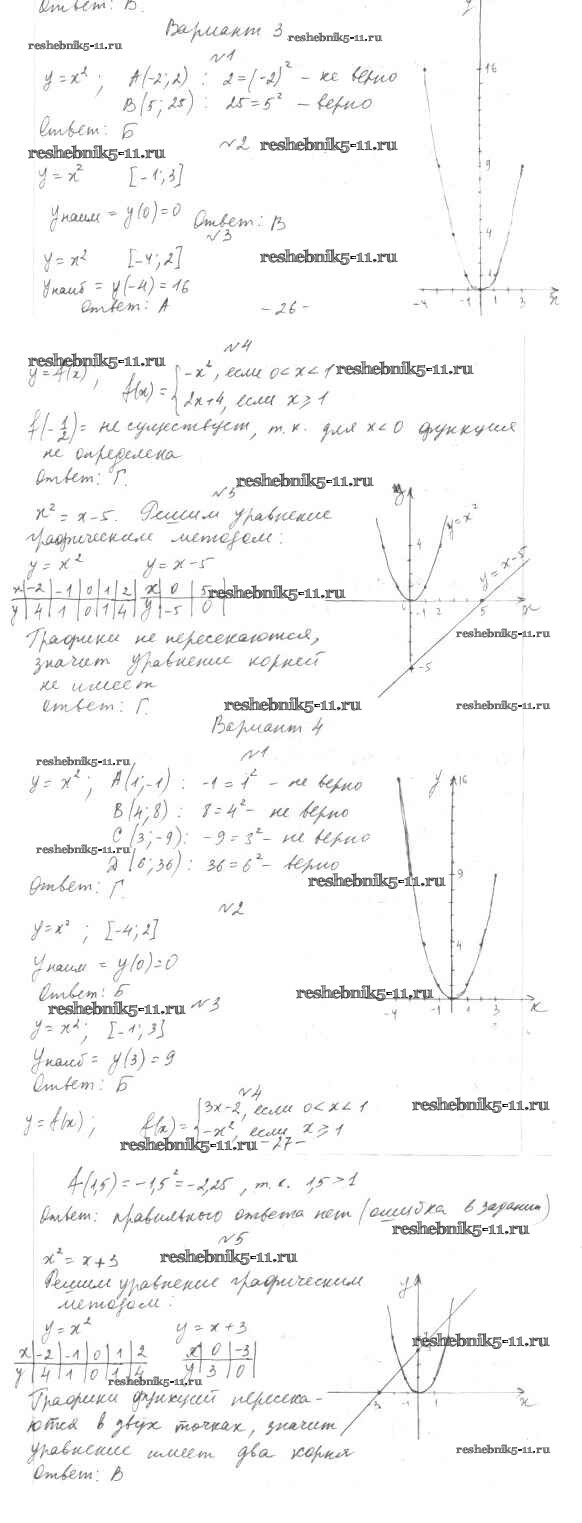 Ответ: В.
Вариант 3
resheb​nik5-11.ru
resheb​nik5-11.ru
№1
y = x² ; A(-2; 2) : 2 = (-2)² - не верно
B(5; 25) : 25 = 5² - верно
Ответ: Б
resheb​nik5-11.ru
№2
resheb​nik5-11.ru
y = x² [-1; 3]
y наим = y(0) = 0 Ответ: В
№3
y = x² [-4; 2]
resheb​nik5-11.ru
y наиб = y(-4) = 16
Ответ: А
-26-
y
16
9
4
-4 -1 1 3 x
№4
reshebnik5-11.ru
y = f(x), f(x) = { -x², если 0 < x < 1
reshebnik5-11.ru
2x+4, если x ⩾ 1
f(-1/2) = не существует, т.к. для x<0 функция
не определена
Ответ: Г.
reshebnik5-11.ru
№5
x² = x - 5. Решим уравнение
графическим методом:
y = x² y = x - 5
x -2 -1 0 1 2 x 0 5
y 4 1 0 1 4 y -5 0
reshebnik5-11.ru
Графики не пересекаются,
значит уравнение корней
не имеет
Ответ: Г.
y
y = x²
4
y = x-5
0 1 2 5 x
-5
reshebnik5-11.ru
reshebnik5-11.ru
reshebnik5-11.ru
Вариант 4
№1
reshebnik5-11.ru
y = x² ; A(1; -1) : -1 = 1² - не верно
B(4; 8) : 8 = 4² - не верно
C(3; -9) : -9 = 3² - не верно
reshebnik5-11.ru
D(6; 36) : 36 = 6² - верно
Ответ: Г.
reshebnik5-11.ru
№2
y = x² ; [-4; 2]
y наим = y(0) = 0
Ответ: Б
reshebnik5-11.ru
reshebnik5-11.ru
№3
y = x² ; [-1; 3]
y наиб = y(3) = 9
Ответ: Б
y
16
9
4
-4 -1 1 3 x
№4
y = f(x); f(x) = { 3x-2, если 0 < x < 1
-x², если x ⩾ 1
reshebnik5-11.ru
reshebnik5-11.ru
-27-
f(1,5) = -1,5² = -2,25, т.к. 1,5 > 1
Ответ: правильного ответа нет (ошибка в задании)
reshebnik5-11.ru
№5
x² = x + 3
reshebnik5-11.ru
Решим уравнение графическим
методом:
y = x² y = x + 3
x -2 -1 0 1 2 x 0 -3
y 4 1 0 1 4 y 3 0
reshebnik5-11.ru
reshebnik5-11.ru
Графики функций пересека-
ются в двух точках, значит
уравнение имеет два корня
Ответ: В
y
3 -1 1 x
reshebnik5-11.ru